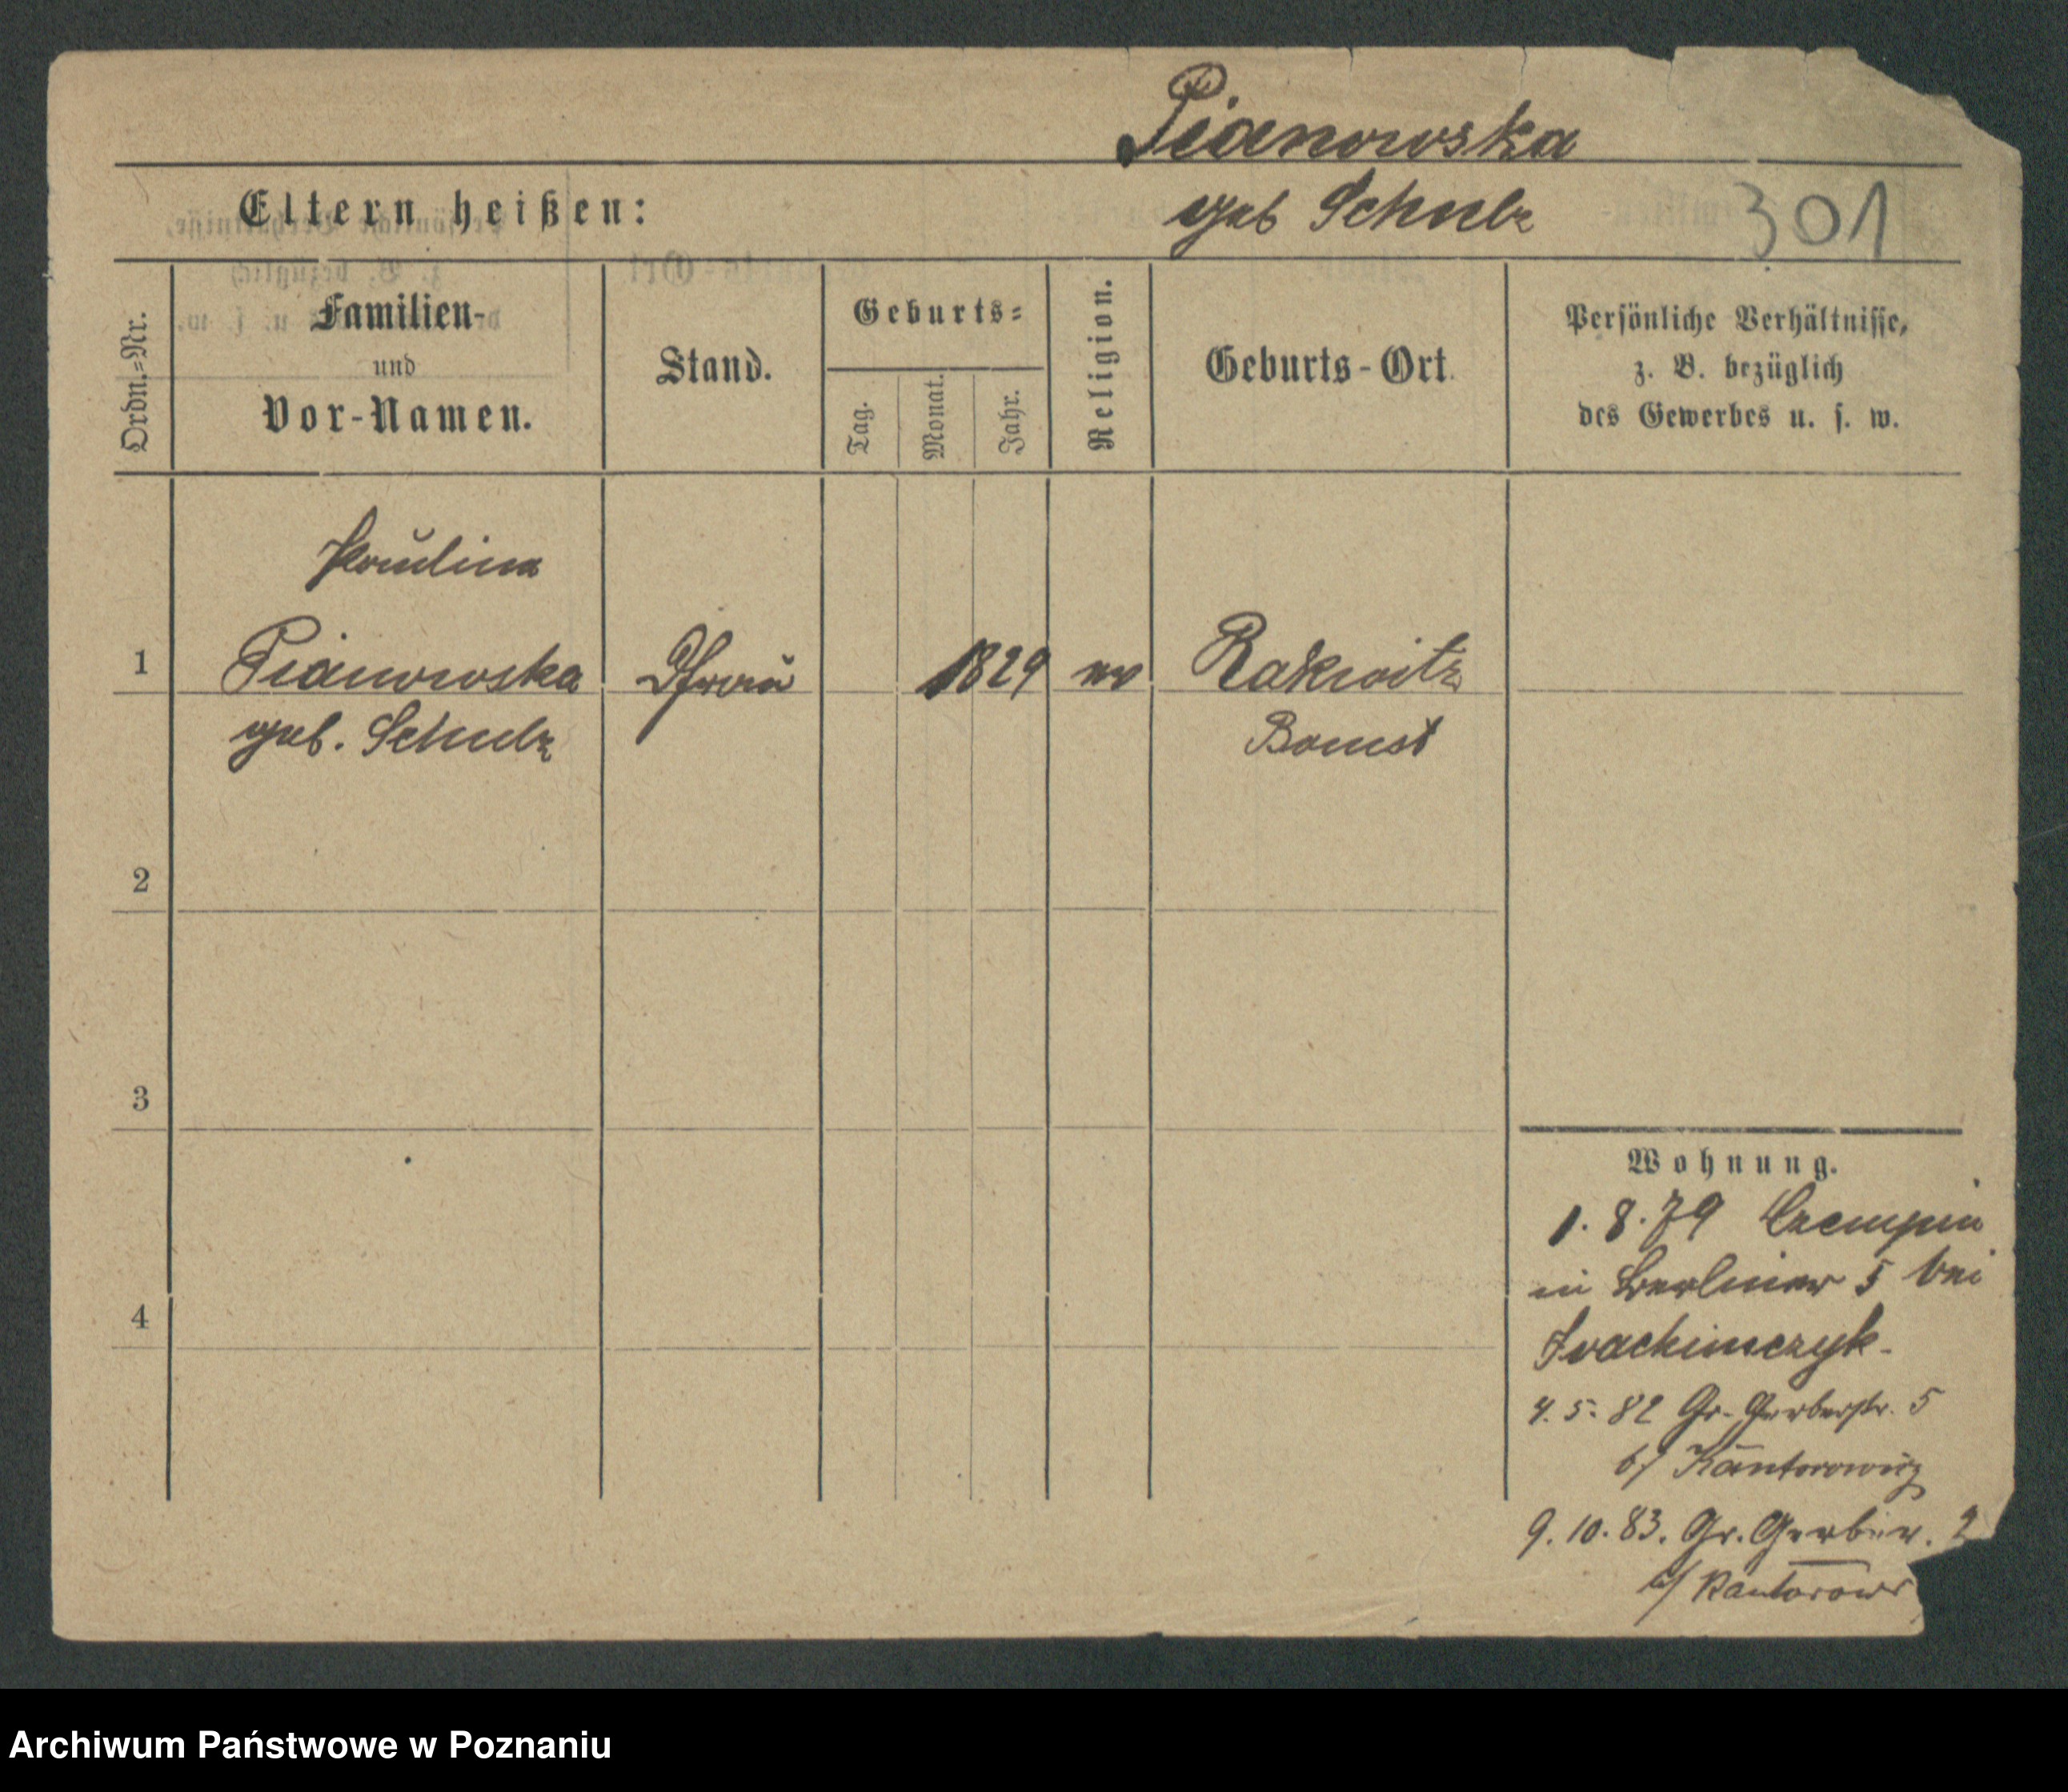 Pianowska
Eltern heißen:
geb Schulz
301
Ordn.-Nr.
Familien-
und
Vor-Namen.
Stand.
Geburts-
Tag.
Monat.
Jahr.
Religion.
Geburts-Ort.
Persönliche Verhältnisse,
z. B. bezüglich
des Gewerbes u. s. w.
Paulina
1 Pianowska 1829 ev Rakwitz
geb. Schulz Bomst
2
3
4
Wohnung.
1. 8. 79 Czempin
in Berliner 5 bei
Joachimczyk.
4. 5. 82 Gr. Gerberstr. 5
b/ Kantorowicz
9. 10. 83. Gr. Gerber. 2
b/ Kantorow
Archiwum Państwowe w Poznaniu